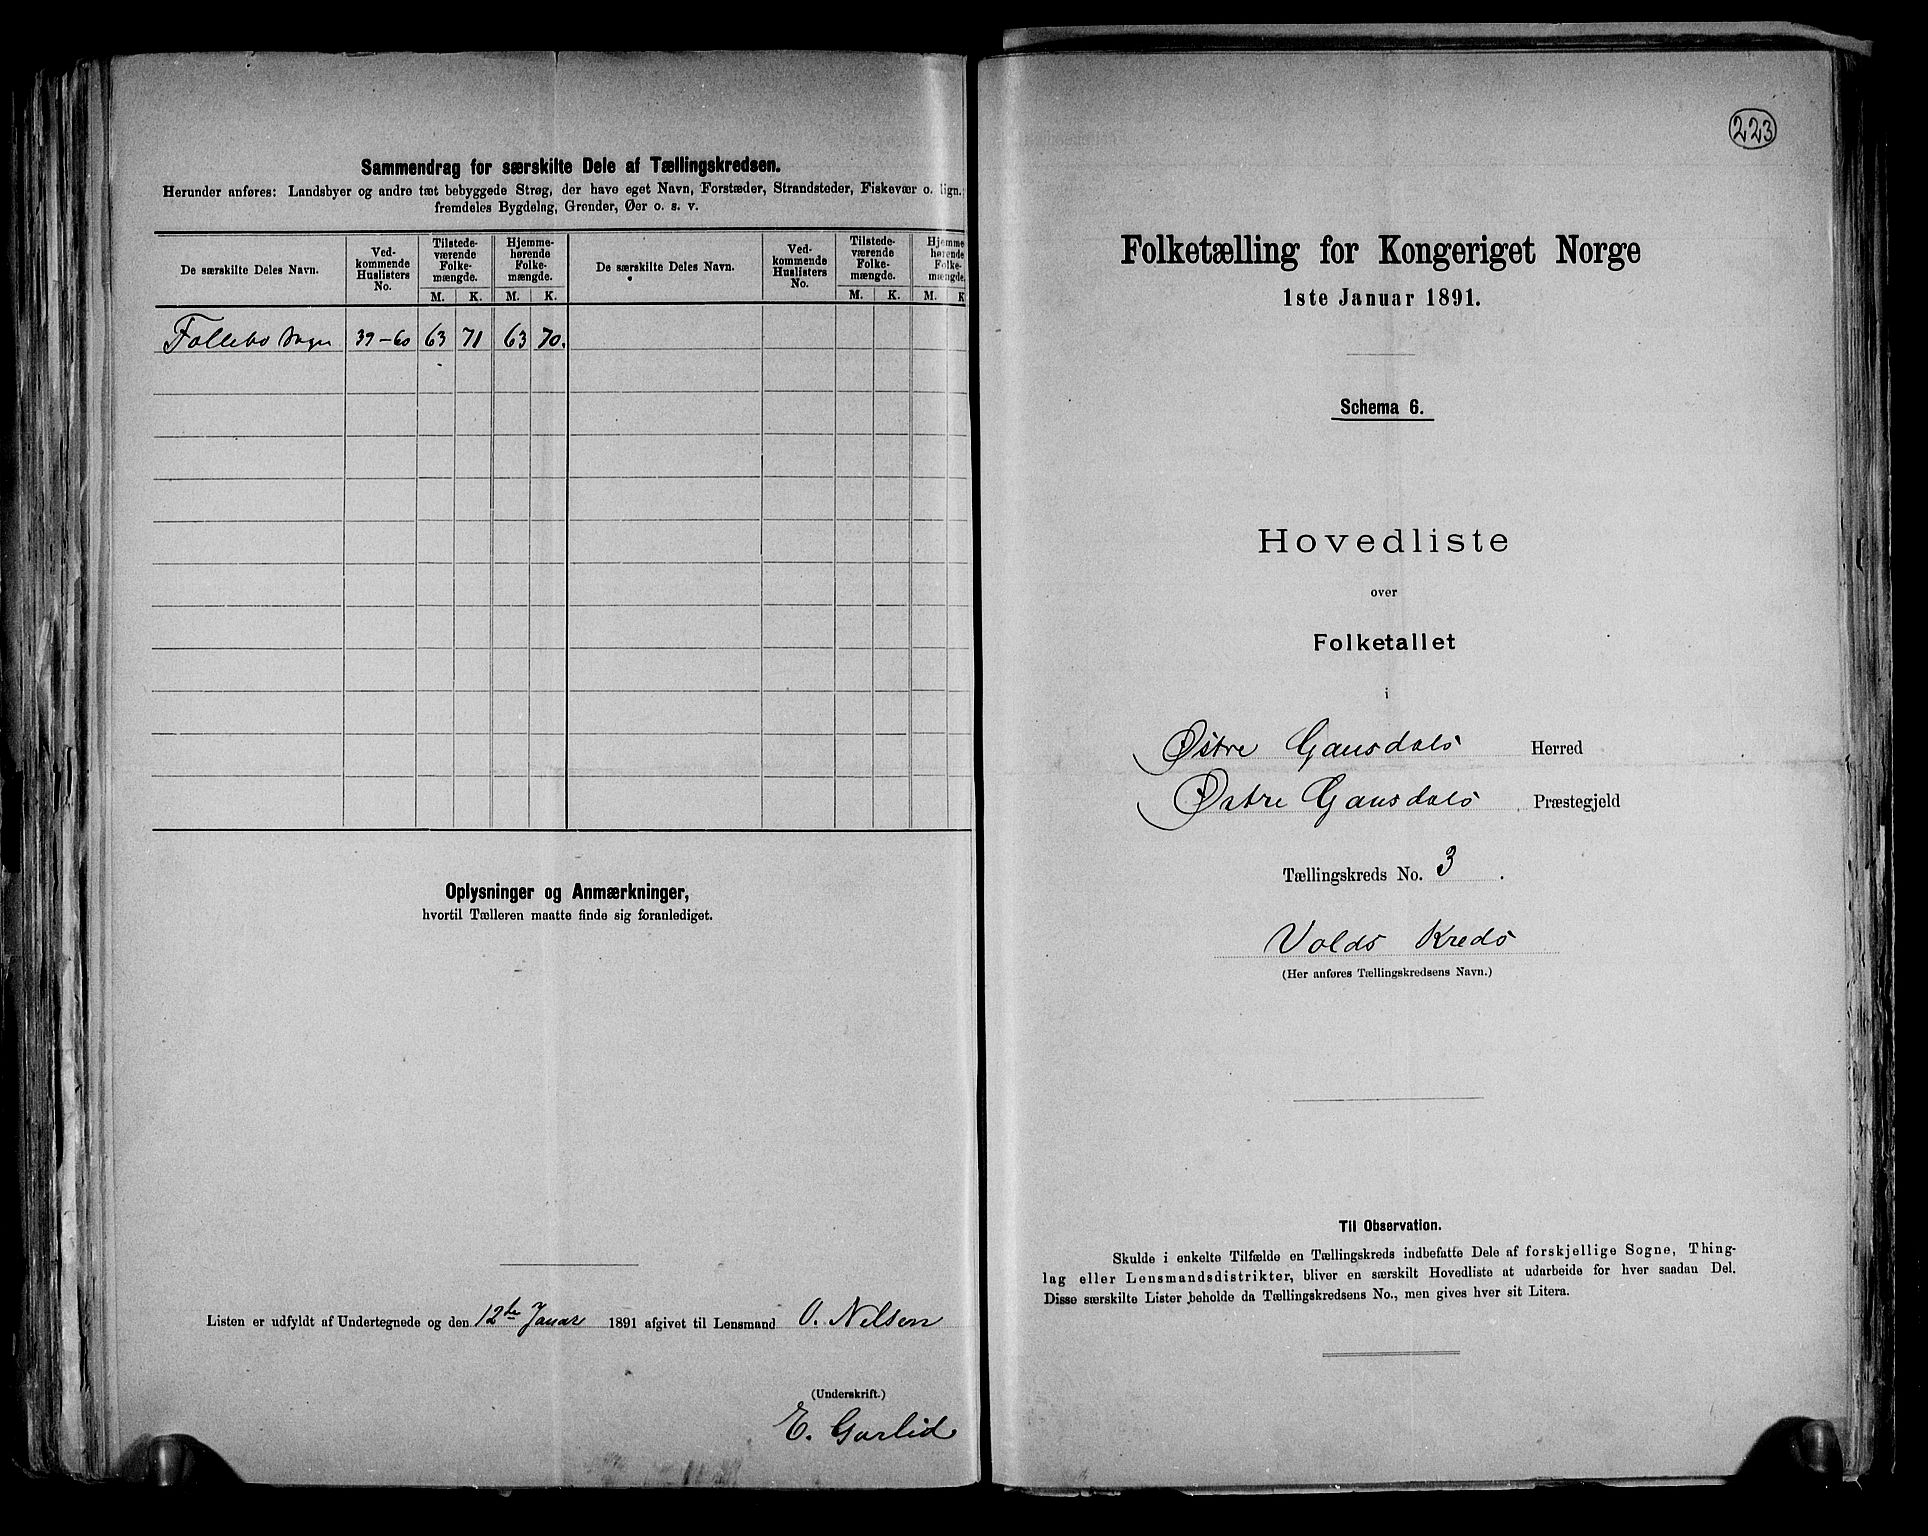 Sammendrag for særskilte Dele af Tællingskredsen.
Herunder anføres: Landsbyer og andre tæt bebyggede Strøg, der have eget Navn, Forstæder, Strandsteder, Fiskevær o. lign.;
fremdeles Bygdelag, Grender, Øer o. s. v.
De særskilte Deles Navn. Ved-kommende Huslisters No. Tilstede-værende Folke-mængde. Hjemme-hørende Folke-mængde. De særskilte Deles Navn. Ved-kommende Huslisters No. Tilstede-værende Folke-mængde. Hjemme-hørende Folke-mængde.
M. K. M. K. M. K. M. K
Follebo Sogn 39-60 63 71 63 70.
Oplysninger og Anmærkninger,
hvortil Tælleren maatte finde sig foranlediget.
Listen er udfyldt af Undertegnede og den 12te Januar 1891 afgivet til Lensmand O. Nilsen
(Underskrift.)
E. Garlid
223
Folketælling for Kongeriget Norge
1ste Januar 1891.
Schema 6.
Hovedliste
over
Folketallet
i
Østre Gausdals Herred
Østre Gausdals Præstegjeld
Tællingskreds No. 3.
Volds Kreds
(Her anføres Tællingskredsens Navn.)
Til Observation.
Skulde i enkelte Tilfælde en Tællingskreds indbefatte Dele af forskjellige Sogne, Thing-
lag eller Lensmandsdistrikter, bliver en særskilt Hovedliste at udarbeide for hver saadan Del.
Disse særskilte Lister beholde da Tællingskredsens No., men gives hver sit Litera.